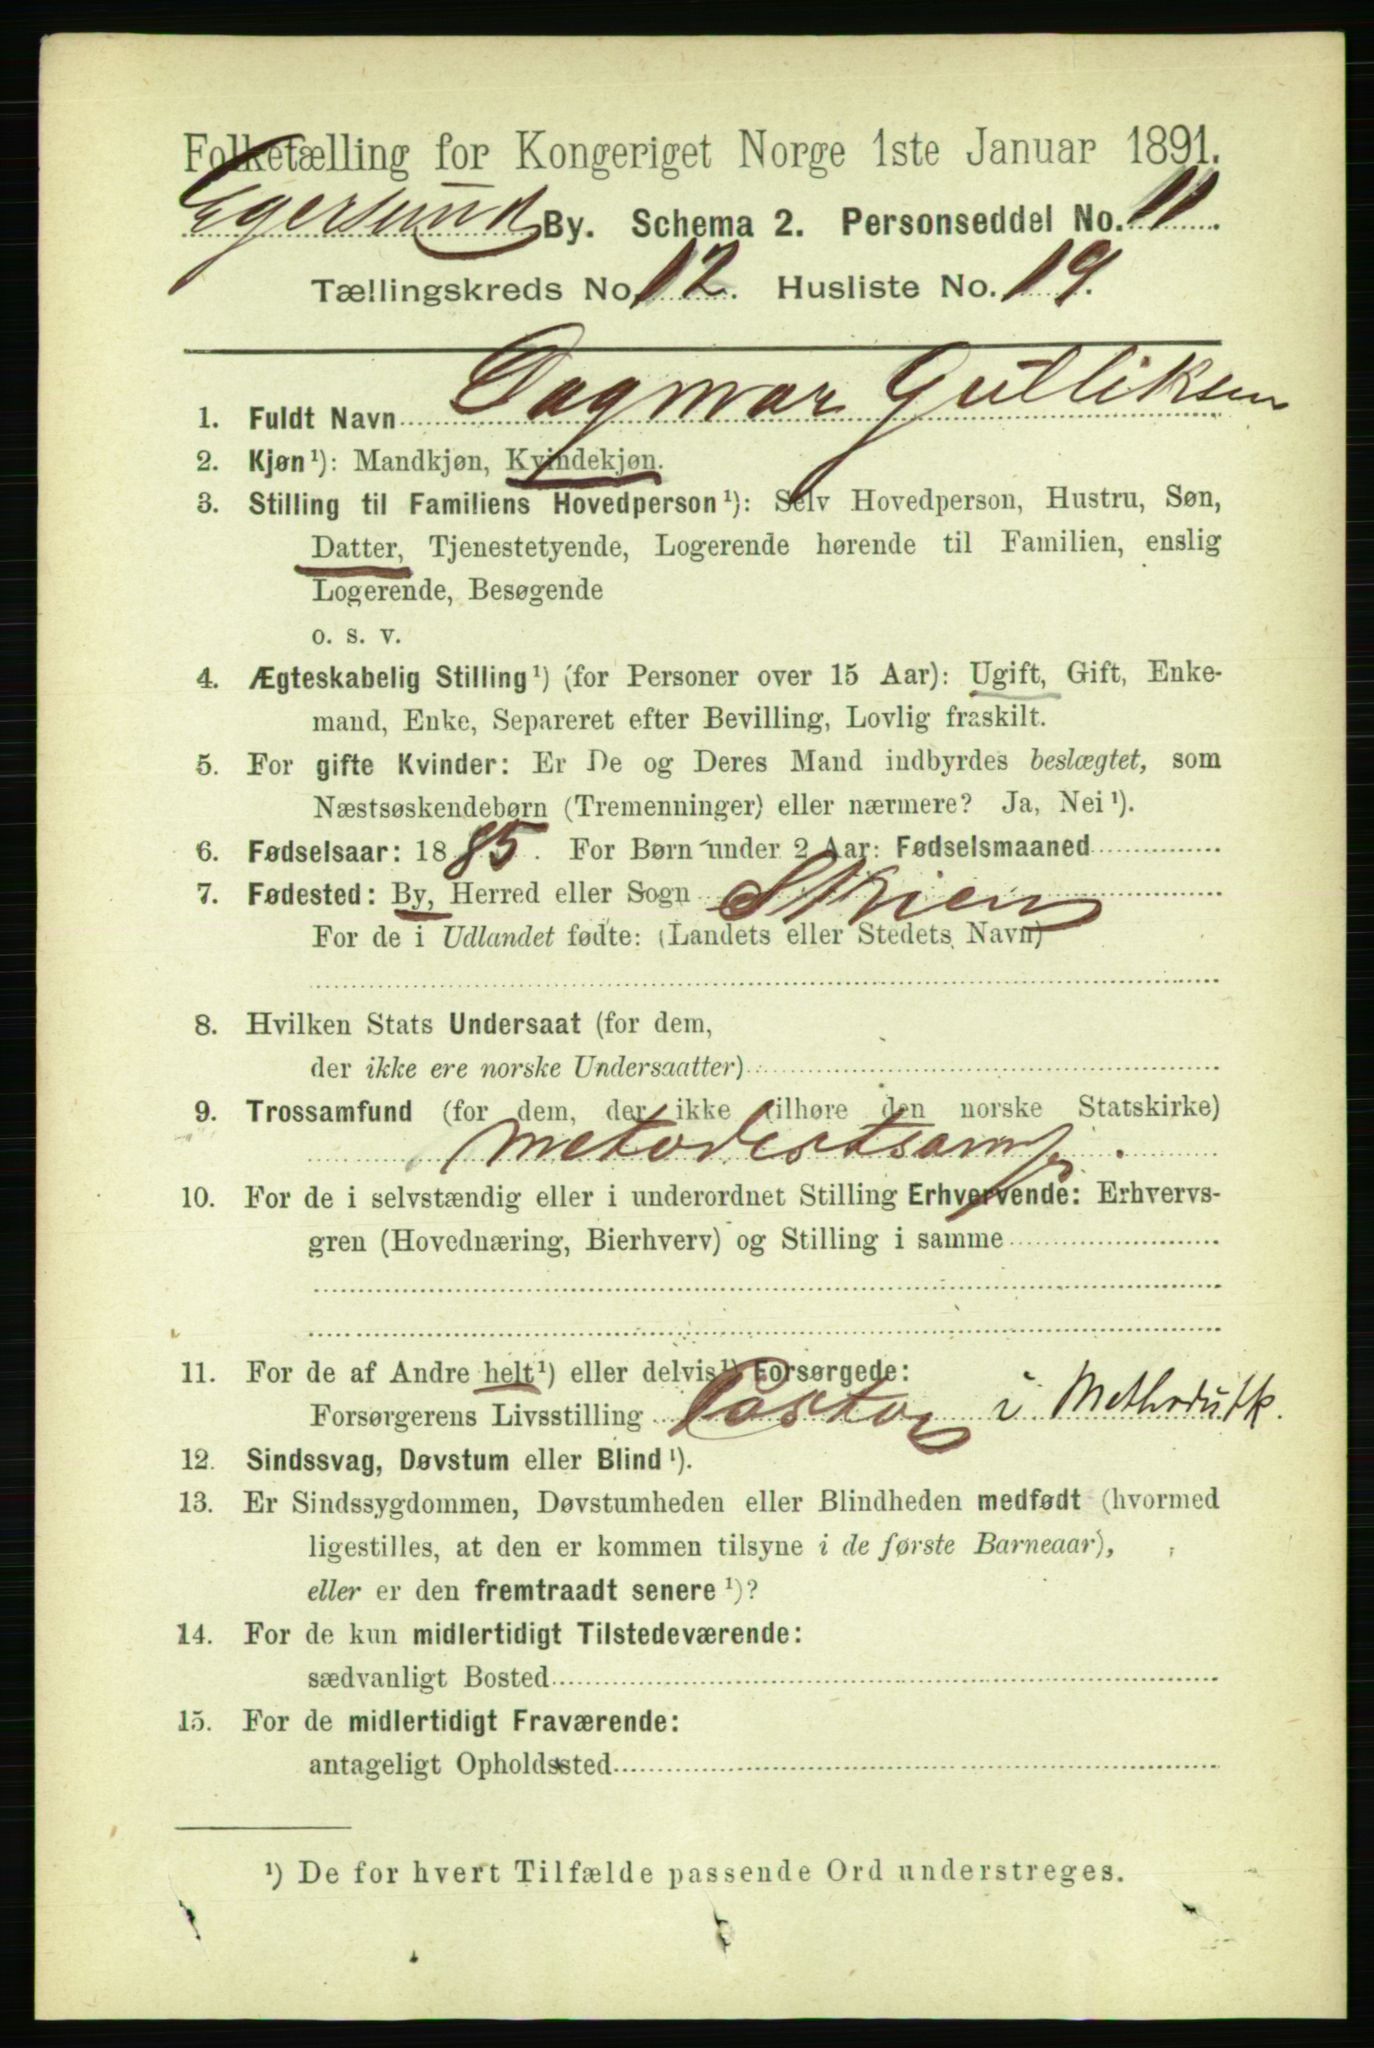 Folketælling for Kongeriget Norge 1ste Januar 1891.
Egersund By. Schema 2. Personseddel No. 11.
Tællingskreds No. 12. Husliste No. 19.
1. Fuldt Navn Dagmar Gulliksen
2. Kjøn¹): Mandkjøn, Kvindekjøn.
3. Stilling til Familiens Hovedperson¹): Selv Hovedperson, Hustru, Søn,
Datter, Tjenestetyende, Logerende hørende til Familien, enslig
Logerende, Besøgende
o. s. v.
4. Ægteskabelig Stilling¹) (for Personer over 15 Aar): Ugift, Gift, Enke-
mand, Enke, Separeret efter Bevilling, Lovlig fraskilt.
5. For gifte Kvinder: Er De og Deres Mand indbyrdes beslægtet, som
Næstsøskendebørn (Tremenninger) eller nærmere? Ja, Nei¹).
6. Fødselsaar: 1885. For Børn under 2 Aar: Fødselsmaaned
7. Fødested: By, Herred eller Sogn Skien
For de i Udlandet fødte: (Landets eller Stedets Navn)
8. Hvilken Stats Undersaat (for dem,
der ikke ere norske Undersaatter)
9. Trossamfund (for dem, der ikke tilhøre den norske Statskirke)
Metodistsamf.
10. For de i selvstændig eller i underordnet Stilling Erhvervende: Erhvervs-
gren (Hovednæring, Bierhverv) og Stilling i samme
11. For de af Andre helt¹) eller delvis¹) Forsørgede:
Forsørgerens Livsstilling Pastor i Methodistk.
12. Sindssvag, Døvstum eller Blind¹).
13. Er Sindssygdommen, Døvstumheden eller Blindheden medfødt (hvormed
ligestilles, at den er kommen tilsyne i de første Barneaar),
eller er den fremtraadt senere¹)?
14. For de kun midlertidigt Tilstedeværende:
sædvanligt Bosted
15. For de midlertidigt Fraværende:
antageligt Opholdssted
¹) De for hvert Tilfælde passende Ord understreges.